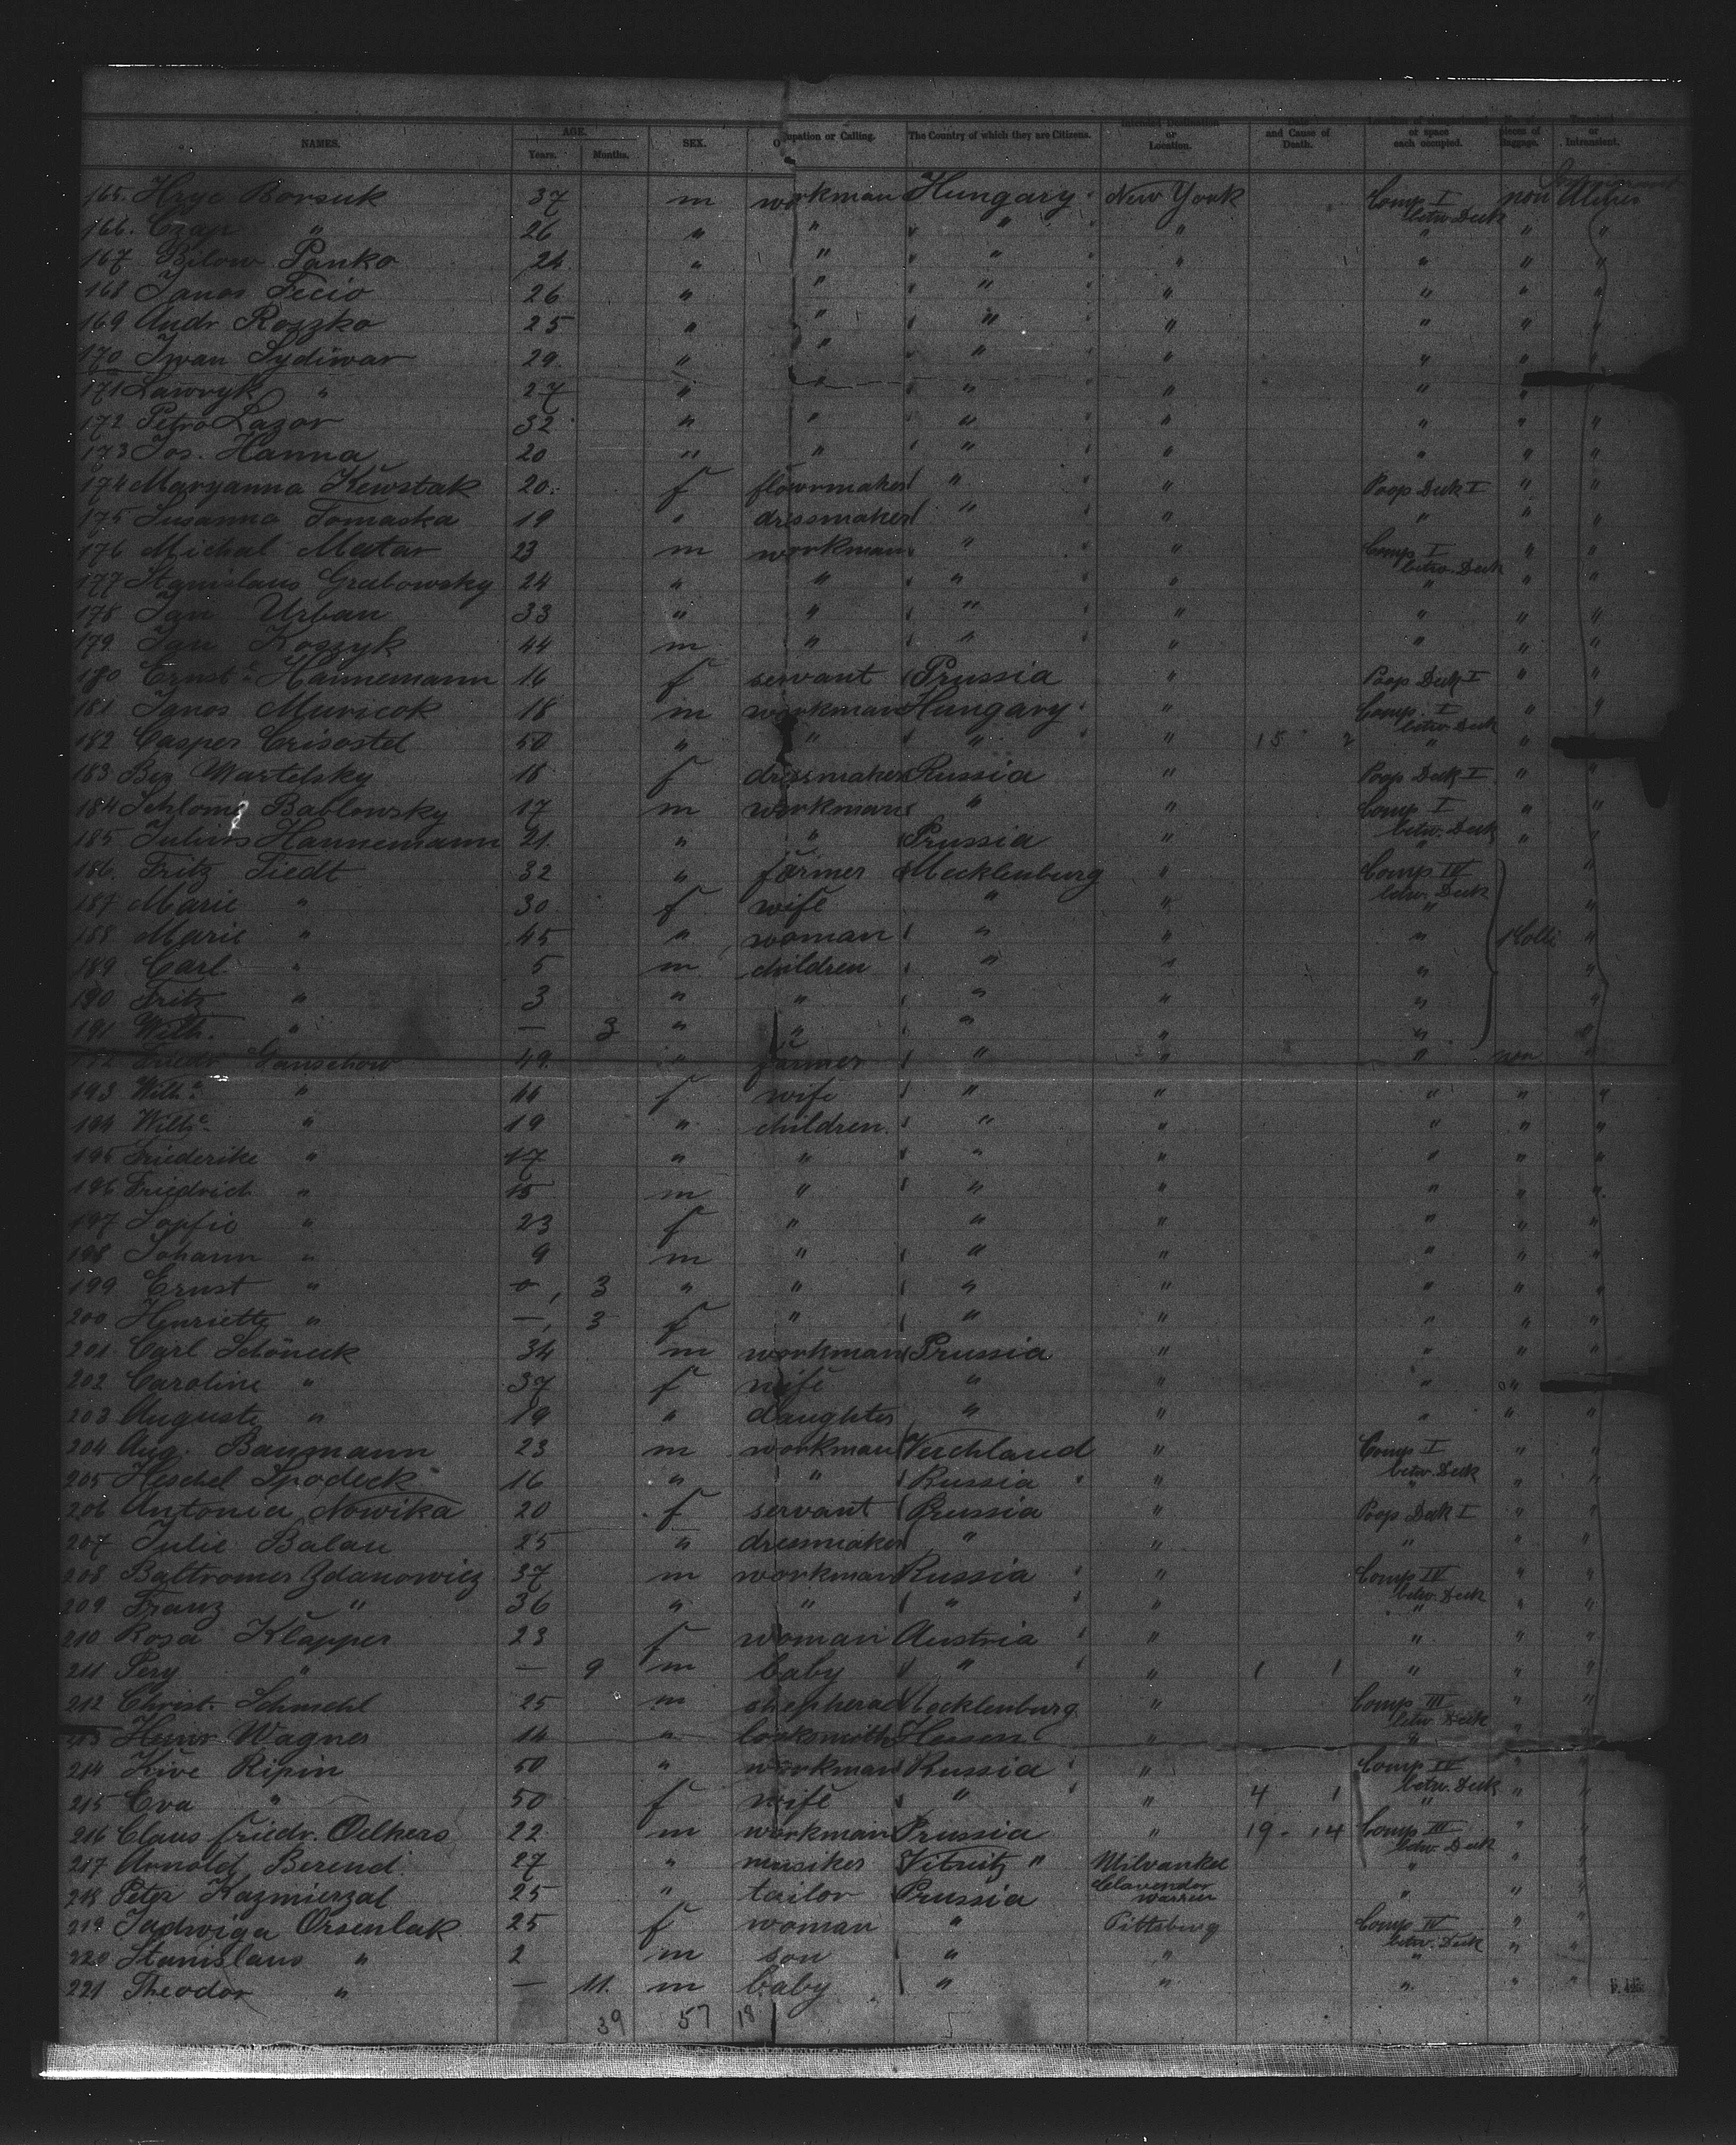 NAMES. AGE. Years. Months. SEX. Occupation or Calling. The Country of which they are Citizens. Intended Destination or Location. and Cause of Death. or space each occupied. pieces of Baggage. or Intransient.
165. Hryc Borsuk 37 m workman Hungary New York Comp I betw. Deck non
166. Czap " 26 " " " " " " "
167 Bilow Panko 24 " " " " " " "
168 Janos Fecio 26 " " " " " " "
169 Andr Roszko 25 " " " " " " "
170 Iwan Sydiwar 29 " " " " " "
171 Lawryk " 27 " " " " " "
172 Petro Lazor 32 " " " " " " "
173 Jos. Hanna 20 " " " " " " "
174 Maryanna Kewstak 20 f " " Poop Deck I " "
175 Susanna Tomaska 19 " dressmaker " " " " "
176 Michal Matar 23 m workman " " Comp I betw. Deck " "
177 Stanislaus Grabowsky 24 " " " " " " "
178 Jan Urban 33 " " " " " " "
179 Jan Koszyk 44 m " " " " " "
180 Ernste Hannemann 16 f servant Prussia " Poop Deck I " "
181 Janos Muricok 18 m workman Hungary " Comp. I betw. Deck " "
182 Casper Crisostel 50 " " " " 15 2 " "
183 Ber Wartelsky 18 f dressmaker Russia " Poop Deck I " "
184 Schlome Bablowsky 17 m workman " " Comp I betw. Deck " "
185 Julius Hannemann 21 " " Prussia " " " "
186. Fritz Tiedt 32 " farmer Mecklenburg " Comp IV betw. Deck "
187 Marie " 30 f wife " " " "
188 Marie " 45 " woman " " " 1 Colli "
189 Carl " 5 m children " " " "
190 Fritz " 3 " " " " " "
191 Wilh. " — 3 " " " " " "
192 Friedr Ganschow 49 " farmer " " " non "
193 Wilh.e " 44 f wife " " " " "
194 Wilh.e " 19 " children " " " " "
195 Friederike " 17 " " " " " " "
196 Friedrich " 15 m " " " " " "
197 Sopfie " 23 f " " " " " "
198 Johann " 9 m " " " " " "
199 Ernst " 0, 3 " " " " " " "
200 Henriette " —, 3 f " " " " " "
201 Carl Schöneck 34 m workman Prussia " " " "
202 Caroline " 37 f wife " " " "
203 Auguste " 19 " daughter " " " " "
204 Aug. Baumann 23 m workman " Comp I betw. Deck " "
205 Heschel Spodeck 16 " " Russia " " " "
206 Antonia Nowika 20 f servant Prussia " Poop Deck I " "
207 Julie Balau 25 " dressmaker " " " " "
208 Baltromer Zdanowicz 37 m workman Russia " Comp IV betw. Deck " "
209 Franz " 36 " " " " " " "
210 Rosa Klapper 23 f woman Austria " " " "
211 Pery " — 9 m baby " " 1 1 " " "
212 Christ. Schmehl 25 m shepherad Mecklenburg " Comp III betw. Deck " "
213 Henr Wagner 14 " locksmith Hessen " " "
214 Kive Ripin 50 " workman Russia " Comp IV betw. Deck " "
215 Eva " 50 f wife " " 4 1 " " "
216 Claus Friedr. Oelkers 22 m workman Prussia " 19 - 14 Comp III betw. Deck " "
217 Arnold Berend 27 " musiker " Milvankee " " "
218 Peter Kazmierzal 25 " tailor Prussia " " "
219 Jadwiga Orsenlak 25 f woman " Pittsburg Comp IV betw. Deck " "
220 Stanislaus " 2 m son " " " " "
221 Theodor " — 11. m baby " " " " "
39 57 18